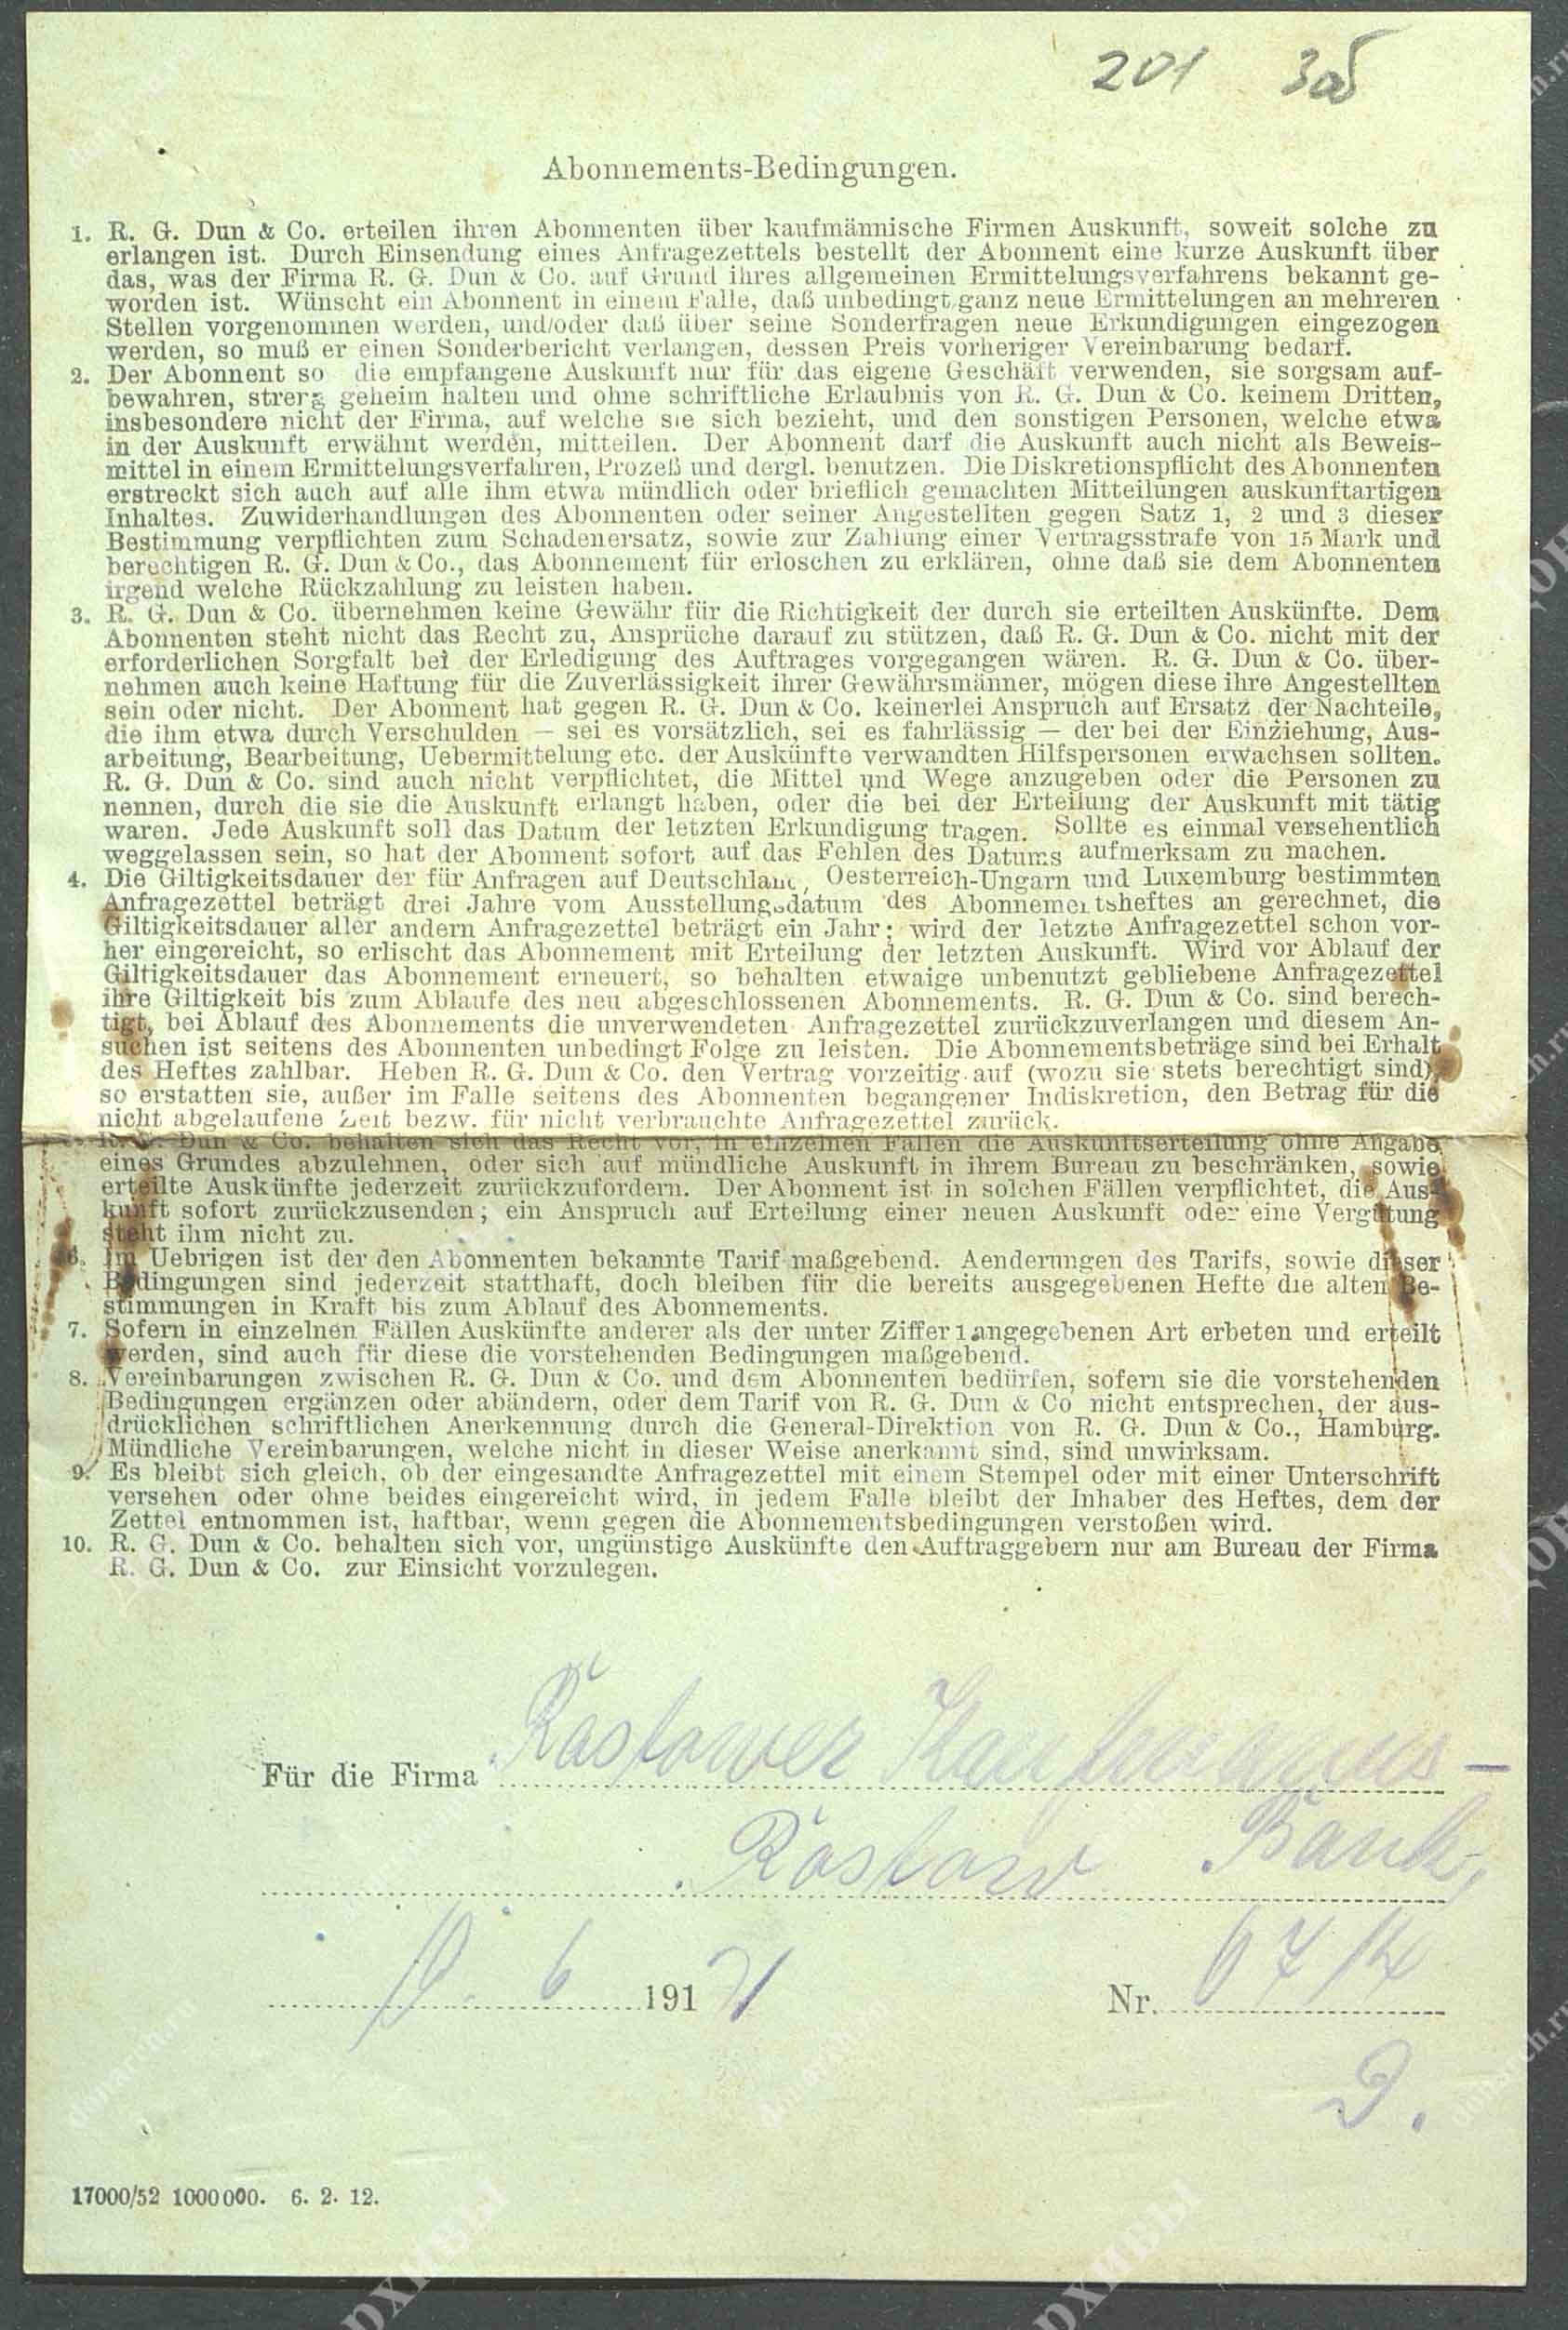 201 3об
Abonnements-Bedingungen.
1. R. G. Dun & Co. erteilen ihren Abonnenten über kaufmännische Firmen Auskunft, soweit solche zu
erlangen ist. Durch Einsendung eines Anfragezettels bestellt der Abonnent eine kurze Auskunft über
das, was der Firma R. G. Dun & Co. auf Grund ihres allgemeinen Ermittelungsverfahrens bekannt ge-
worden ist. Wünscht ein Abonnent in einem Falle, daß unbedingt ganz neue Ermittelungen an mehreren
Stellen vorgenommen werden, und/oder daß über seine Sonderfragen neue Erkundigungen eingezogen
werden, so muß er einen Sonderbericht verlangen, dessen Preis vorheriger Vereinbarung bedarf.
2. Der Abonnent so die empfangene Auskunft nur für das eigene Geschäft verwenden, sie sorgsam auf-
bewahren, streng geheim halten und ohne schriftliche Erlaubnis von R. G. Dun & Co. keinem Dritten,
insbesondere nicht der Firma, auf welche sie sich bezieht, und den sonstigen Personen, welche etwa
in der Auskunft erwähnt werden, mitteilen. Der Abonnent darf die Auskunft auch nicht als Beweis-
mittel in einem Ermittelungsverfahren, Prozeß und dergl. benutzen. Die Diskretionspflicht des Abonnenten
erstreckt sich auch auf alle ihm etwa mündlich oder brieflich gemachten Mitteilungen auskunftartigen
Inhaltes. Zuwiderhandlungen des Abonnenten oder seiner Angestellten gegen Satz 1, 2 und 3 dieser
Bestimmung verpflichten zum Schadenersatz, sowie zur Zahlung einer Vertragsstrafe von 15 Mark und
berechtigen R. G. Dun & Co., das Abonnement für erloschen zu erklären, ohne daß sie dem Abonnenten
irgend welche Rückzahlung zu leisten haben.
3. R. G. Dun & Co. übernehmen keine Gewähr für die Richtigkeit der durch sie erteilten Auskünfte. Dem
Abonnenten steht nicht das Recht zu, Ansprüche darauf zu stützen, daß R. G. Dun & Co. nicht mit der
erforderlichen Sorgfalt bei der Erledigung des Auftrages vorgegangen wären. R. G. Dun & Co. über-
nehmen auch keine Haftung für die Zuverlässigkeit ihrer Gewährsmänner, mögen diese ihre Angestellten
sein oder nicht. Der Abonnent hat gegen R. G. Dun & Co. keinerlei Anspruch auf Ersatz der Nachteile,
die ihm etwa durch Verschulden — sei es vorsätzlich, sei es fahrlässig — der bei der Einziehung, Aus-
arbeitung, Bearbeitung, Uebermittelung etc. der Auskünfte verwandten Hilfspersonen erwachsen sollten.
R. G. Dun & Co. sind auch nicht verpflichtet, die Mittel und Wege anzugeben oder die Personen zu
nennen, durch die sie die Auskunft erlangt haben, oder die bei der Erteilung der Auskunft mit tätig
waren. Jede Auskunft soll das Datum der letzten Erkundigung tragen. Sollte es einmal versehentlich
weggelassen sein, so hat der Abonnent sofort auf das Fehlen des Datums aufmerksam zu machen.
4. Die Giltigkeitsdauer der für Anfragen auf Deutschland, Oesterreich-Ungarn und Luxemburg bestimmten
Anfragezettel beträgt drei Jahre vom Ausstellungsdatum des Abonnementsheftes an gerechnet, die
Giltigkeitsdauer aller andern Anfragezettel beträgt ein Jahr; wird der letzte Anfragezettel schon vor-
her eingereicht, so erlischt das Abonnement mit Erteilung der letzten Auskunft. Wird vor Ablauf der
Giltigkeitsdauer das Abonnement erneuert, so behalten etwaige unbenutzt gebliebene Anfragezettel
ihre Giltigkeit bis zum Ablaufe des neu abgeschlossenen Abonnements. R. G. Dun & Co. sind berech-
tigt, bei Ablauf des Abonnements die unverwendeten Anfragezettel zurückzuverlangen und diesem An-
suchen ist seitens des Abonnenten unbedingt Folge zu leisten. Die Abonnementsbeträge sind bei Erhalt
des Heftes zahlbar. Heben R. G. Dun & Co. den Vertrag vorzeitig auf (wozu sie stets berechtigt sind),
so erstatten sie, außer im Falle seitens des Abonnenten begangener Indiskretion, den Betrag für die
nicht abgelaufene Zeit bezw. für nicht verbrauchte Anfragezettel zurück.
R. G. Dun & Co. behalten sich das Recht vor, in einzelnen Fällen die Auskunftserteilung ohne Angabe
eines Grundes abzulehnen, oder sich auf mündliche Auskunft in ihrem Bureau zu beschränken, sowie
erteilte Auskünfte jederzeit zurückzufordern. Der Abonnent ist in solchen Fällen verpflichtet, die Aus-
kunft sofort zurückzusenden; ein Anspruch auf Erteilung einer neuen Auskunft oder eine Vergütung
steht ihm nicht zu.
6. Im Uebrigen ist der den Abonnenten bekannte Tarif maßgebend. Aenderungen des Tarifs, sowie dieser
Bedingungen sind jederzeit statthaft, doch bleiben für die bereits ausgegebenen Hefte die alten Be-
stimmungen in Kraft bis zum Ablauf des Abonnements.
7. Sofern in einzelnen Fällen Auskünfte anderer als der unter Ziffer 1 angegebenen Art erbeten und erteilt
werden, sind auch für diese die vorstehenden Bedingungen maßgebend.
8. Vereinbarungen zwischen R. G. Dun & Co. und dem Abonnenten bedürfen, sofern sie die vorstehenden
Bedingungen ergänzen oder abändern, oder dem Tarif von R. G. Dun & Co nicht entsprechen, der aus-
drücklichen schriftlichen Anerkennung durch die General-Direktion von R. G. Dun & Co., Hamburg.
Mündliche Vereinbarungen, welche nicht in dieser Weise anerkannt sind, sind unwirksam.
9. Es bleibt sich gleich, ob der eingesandte Anfragezettel mit einem Stempel oder mit einer Unterschrift
versehen oder ohne beides eingereicht wird, in jedem Falle bleibt der Inhaber des Heftes, dem der
Zettel entnommen ist, haftbar, wenn gegen die Abonnementsbedingungen verstoßen wird.
10. R. G. Dun & Co. behalten sich vor, ungünstige Auskünfte den Auftraggebern nur am Bureau der Firma
R. G. Dun & Co. zur Einsicht vorzulegen.
Für die Firma Rostower Kaufmanns-
Rostow Bank,
6 191 Nr.
D.
17000/52 1000000. 6. 2. 12.